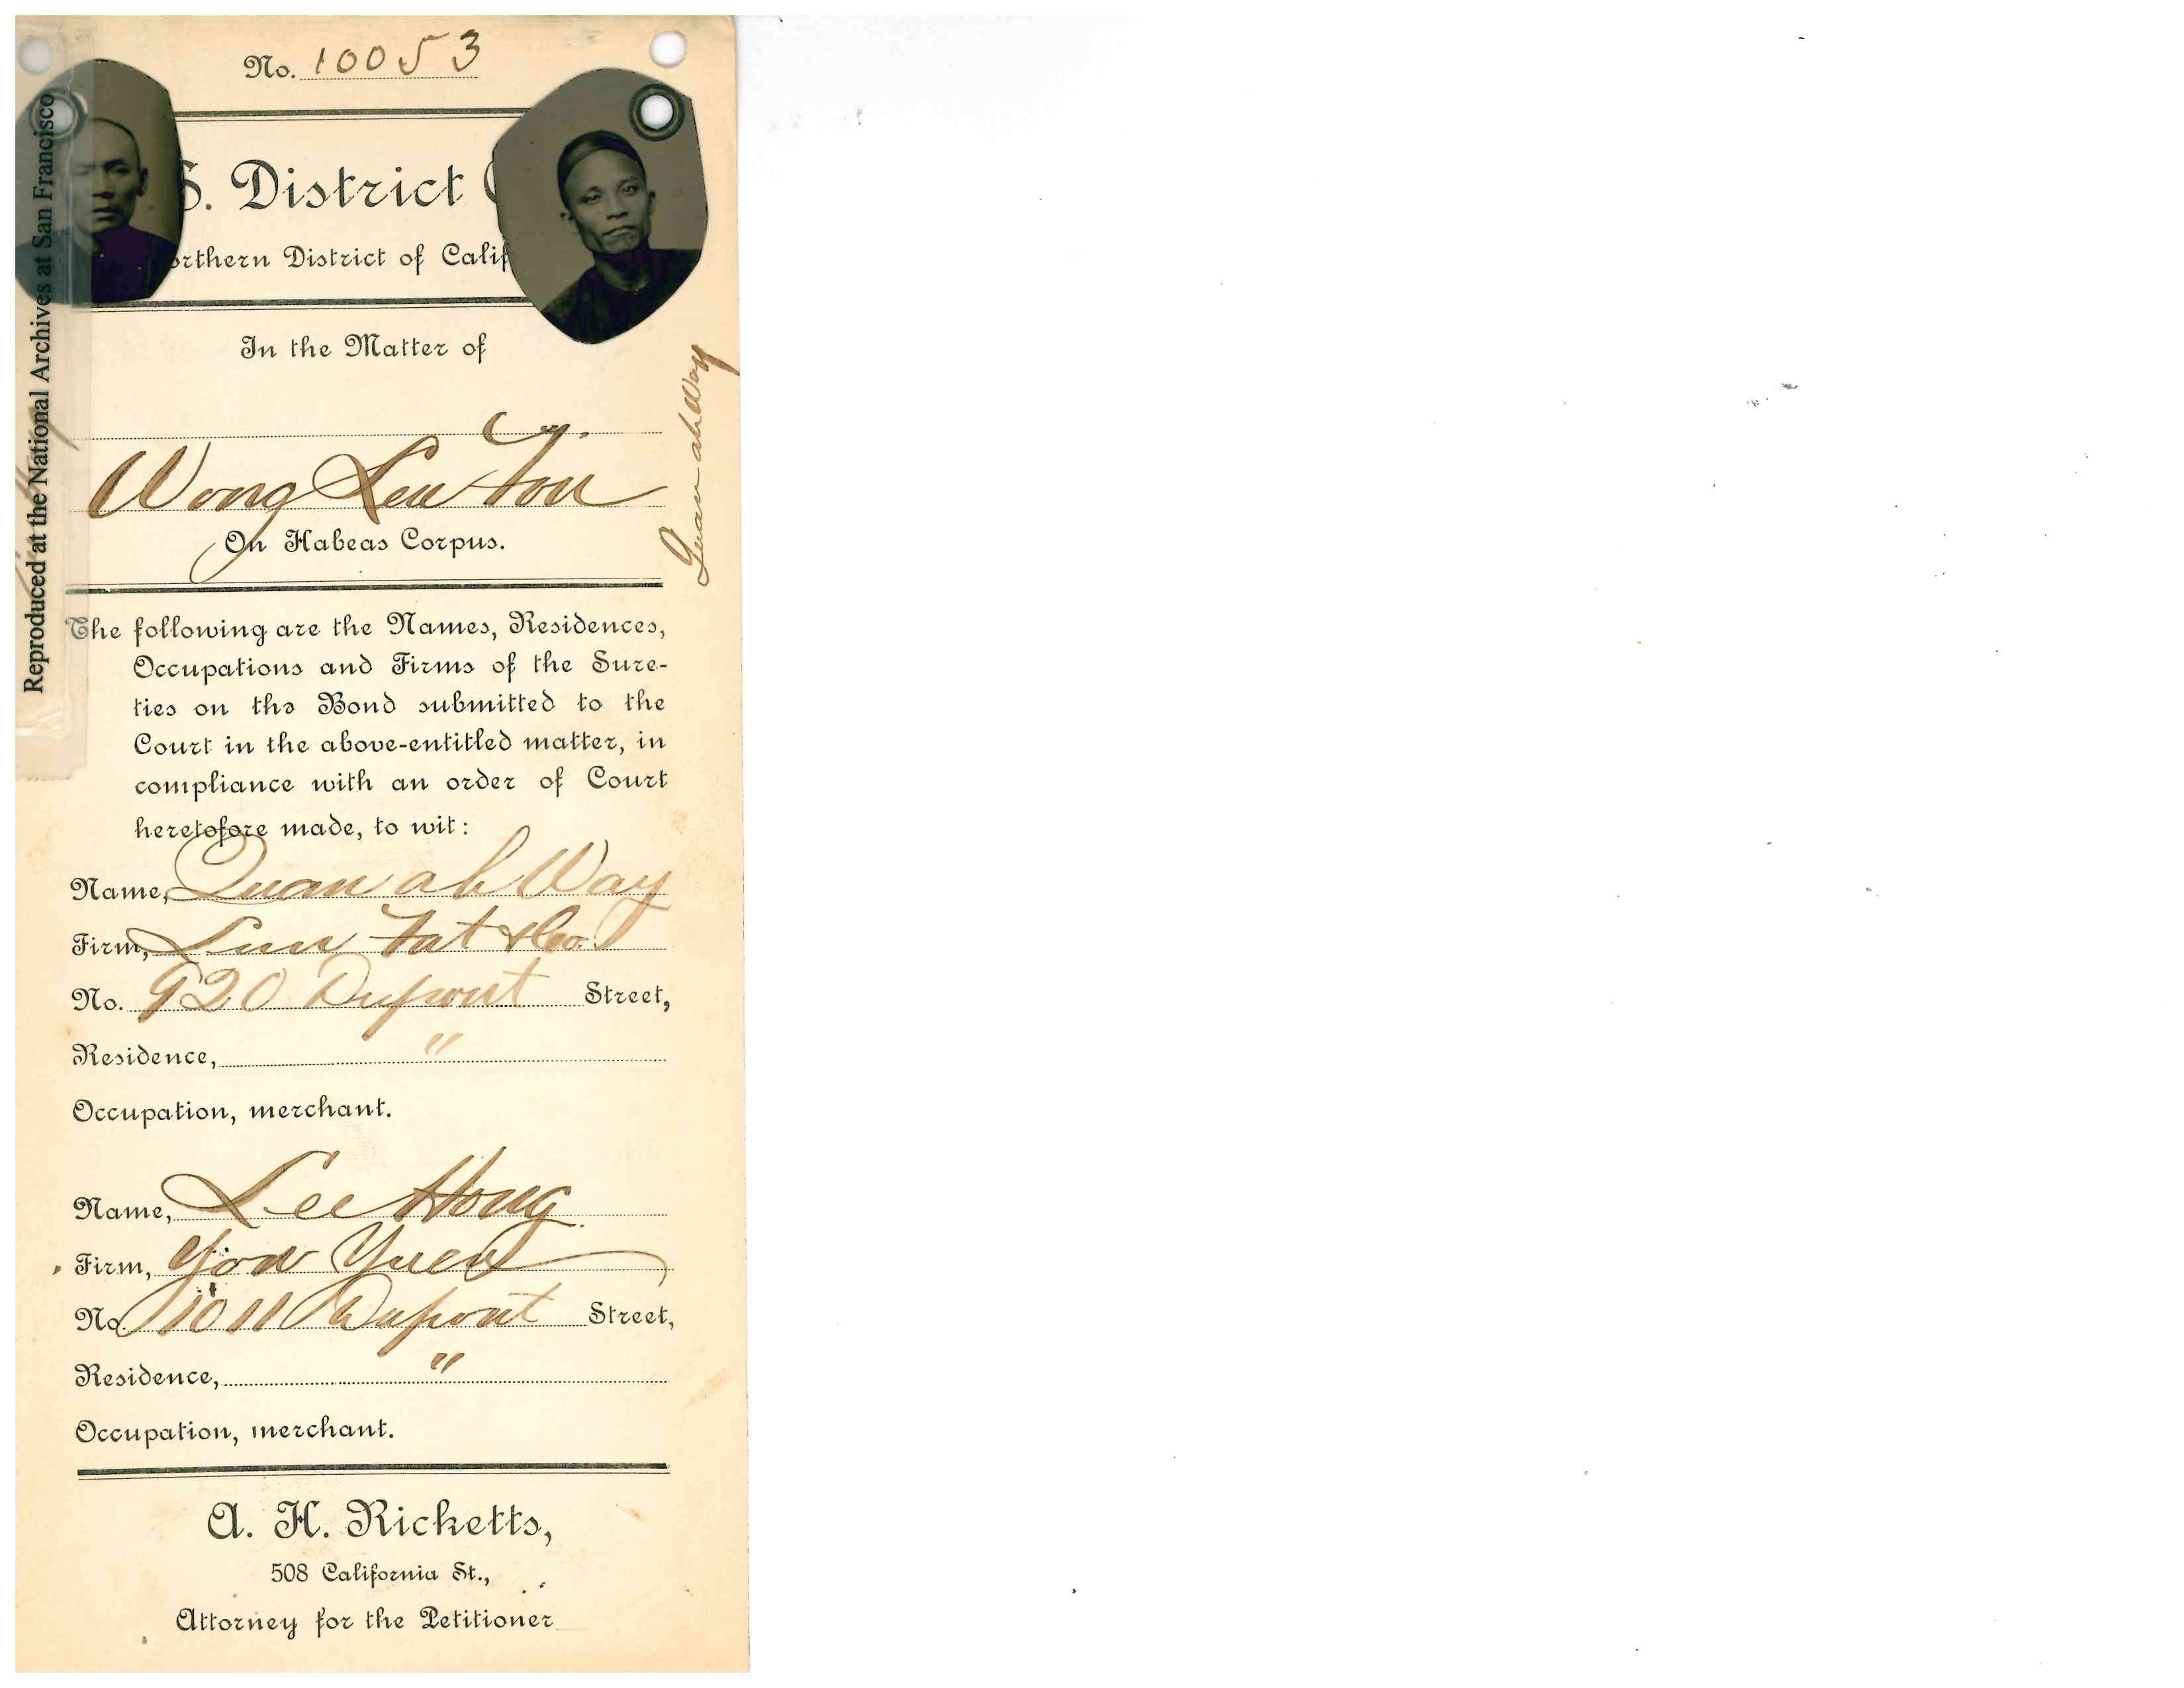 No. 10053
S. District
orthern District of Calif
In the Matter of
Wong
On Habeas Corpus.
Quan ah Way
Reproduced at the National Archives at San Francisco
The following are the Names, Residences,
Occupations and Firms of the Sure-
ties on the Bond submitted to the
Court in the above-entitled matter, in
compliance with an order of Court
heretofore made, to wit:
Name, Quan ah Way
Firm, Fat & Co.
No. 920 Dupont Street,
Residence, "
Occupation, merchant.
Name, Lee Hong
Firm, Yuen
No. 1011 Dupont Street,
Residence, "
Occupation, merchant.
A. H. Ricketts,
508 California St.,
Attorney for the Petitioner